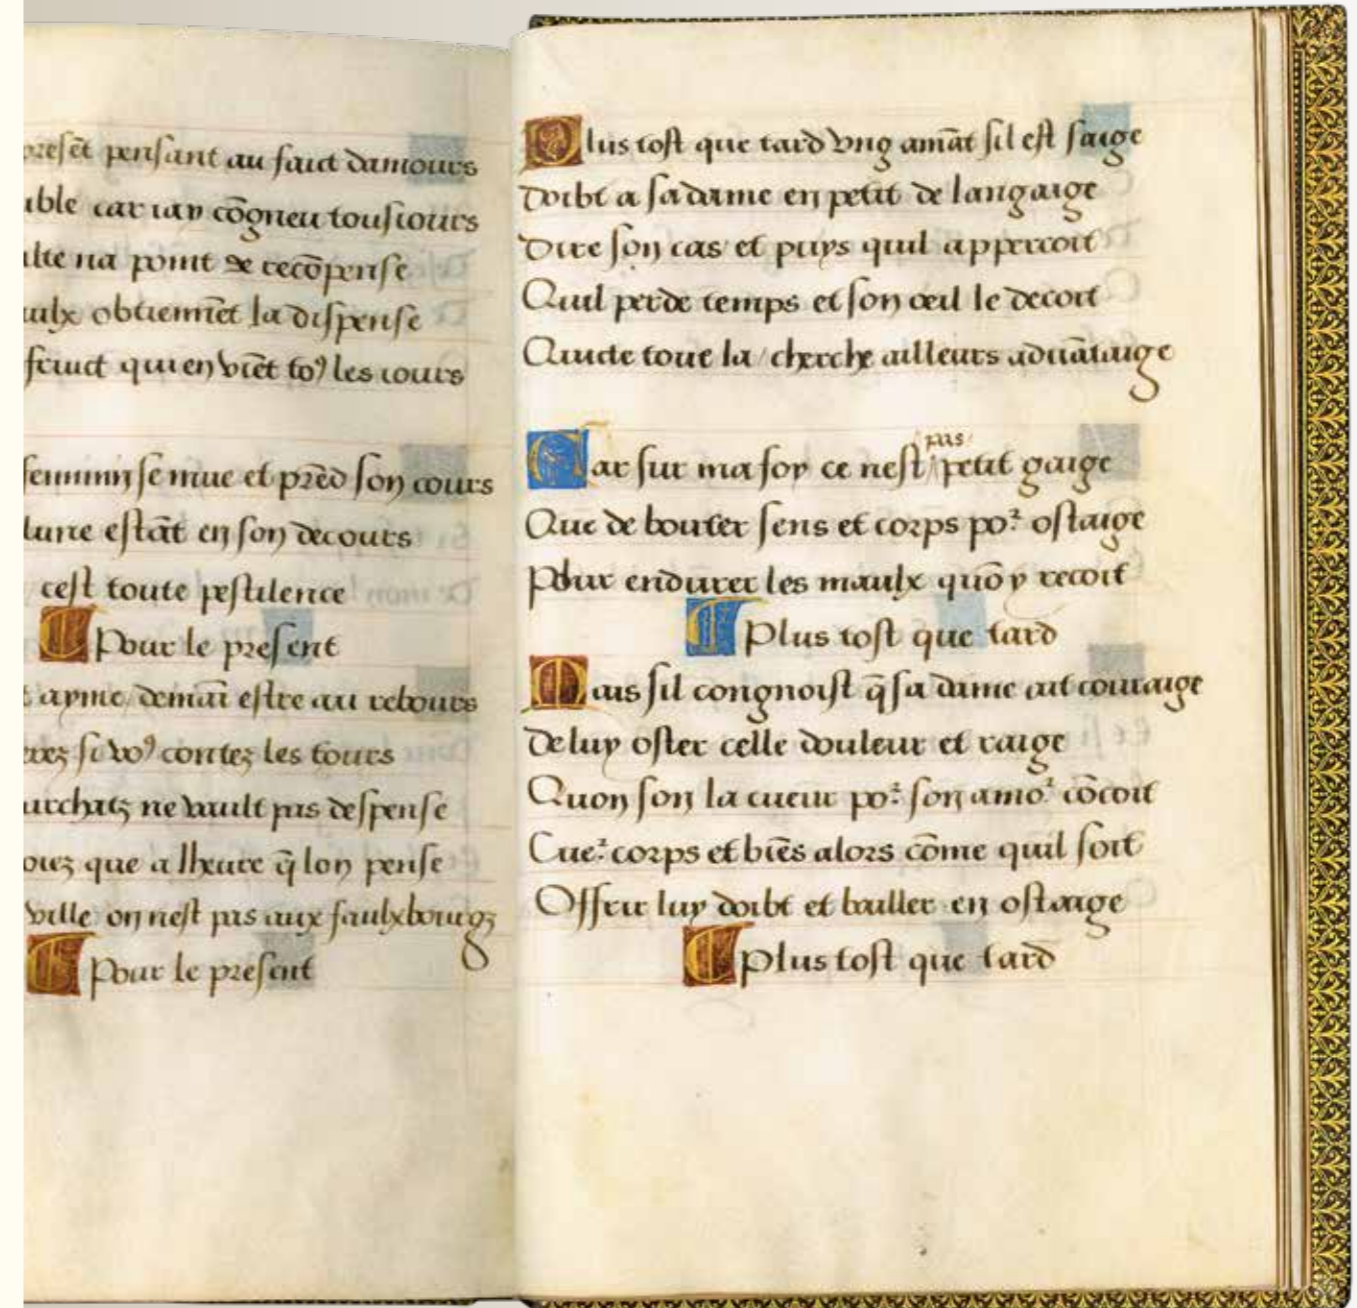 preset̄ pensant au faict damours
ible car iay cōgneu tousiours
lte na point de recōpense
aulx obtiennēt la dispense
fruict qui en viēt toꝰ les iours
feminin se mue et prēd son cours
lune estāt en son decours
cest toute pestilence
Pour le present
ayme demaī estre au rebours
rez si voꝰ contez les tours
urchatz ne vault pas despense
oiez que a lheure q̄ lon pense
ville on nest pas aux faulxbourgz
Pour le present
Plus tost que tard vng amāt sil est saige
Doibt a sa dame en petit de langaige
Dire son cas et puys quil appercoit
Quil perde temps et son œil le decoit
Quicte tout la / cherche ailleurs aduātaige
Car sur ma foy ce nest pas petit gaige
Que de bouter sens et corps poꝛ ostaige
Pour endurer les maulx quō y recoit
Plus tost que tard
Mais sil congnoist q̄ sa dame ait couraige
De luy oster celle douleur et raige
Quon son la cueur poꝛ son amoꝛ cōcoit
Cueꝛ corps et biēs alors cōme quil soit
Offrir luy doibt et bailler en ostaige
Plus tost que tard